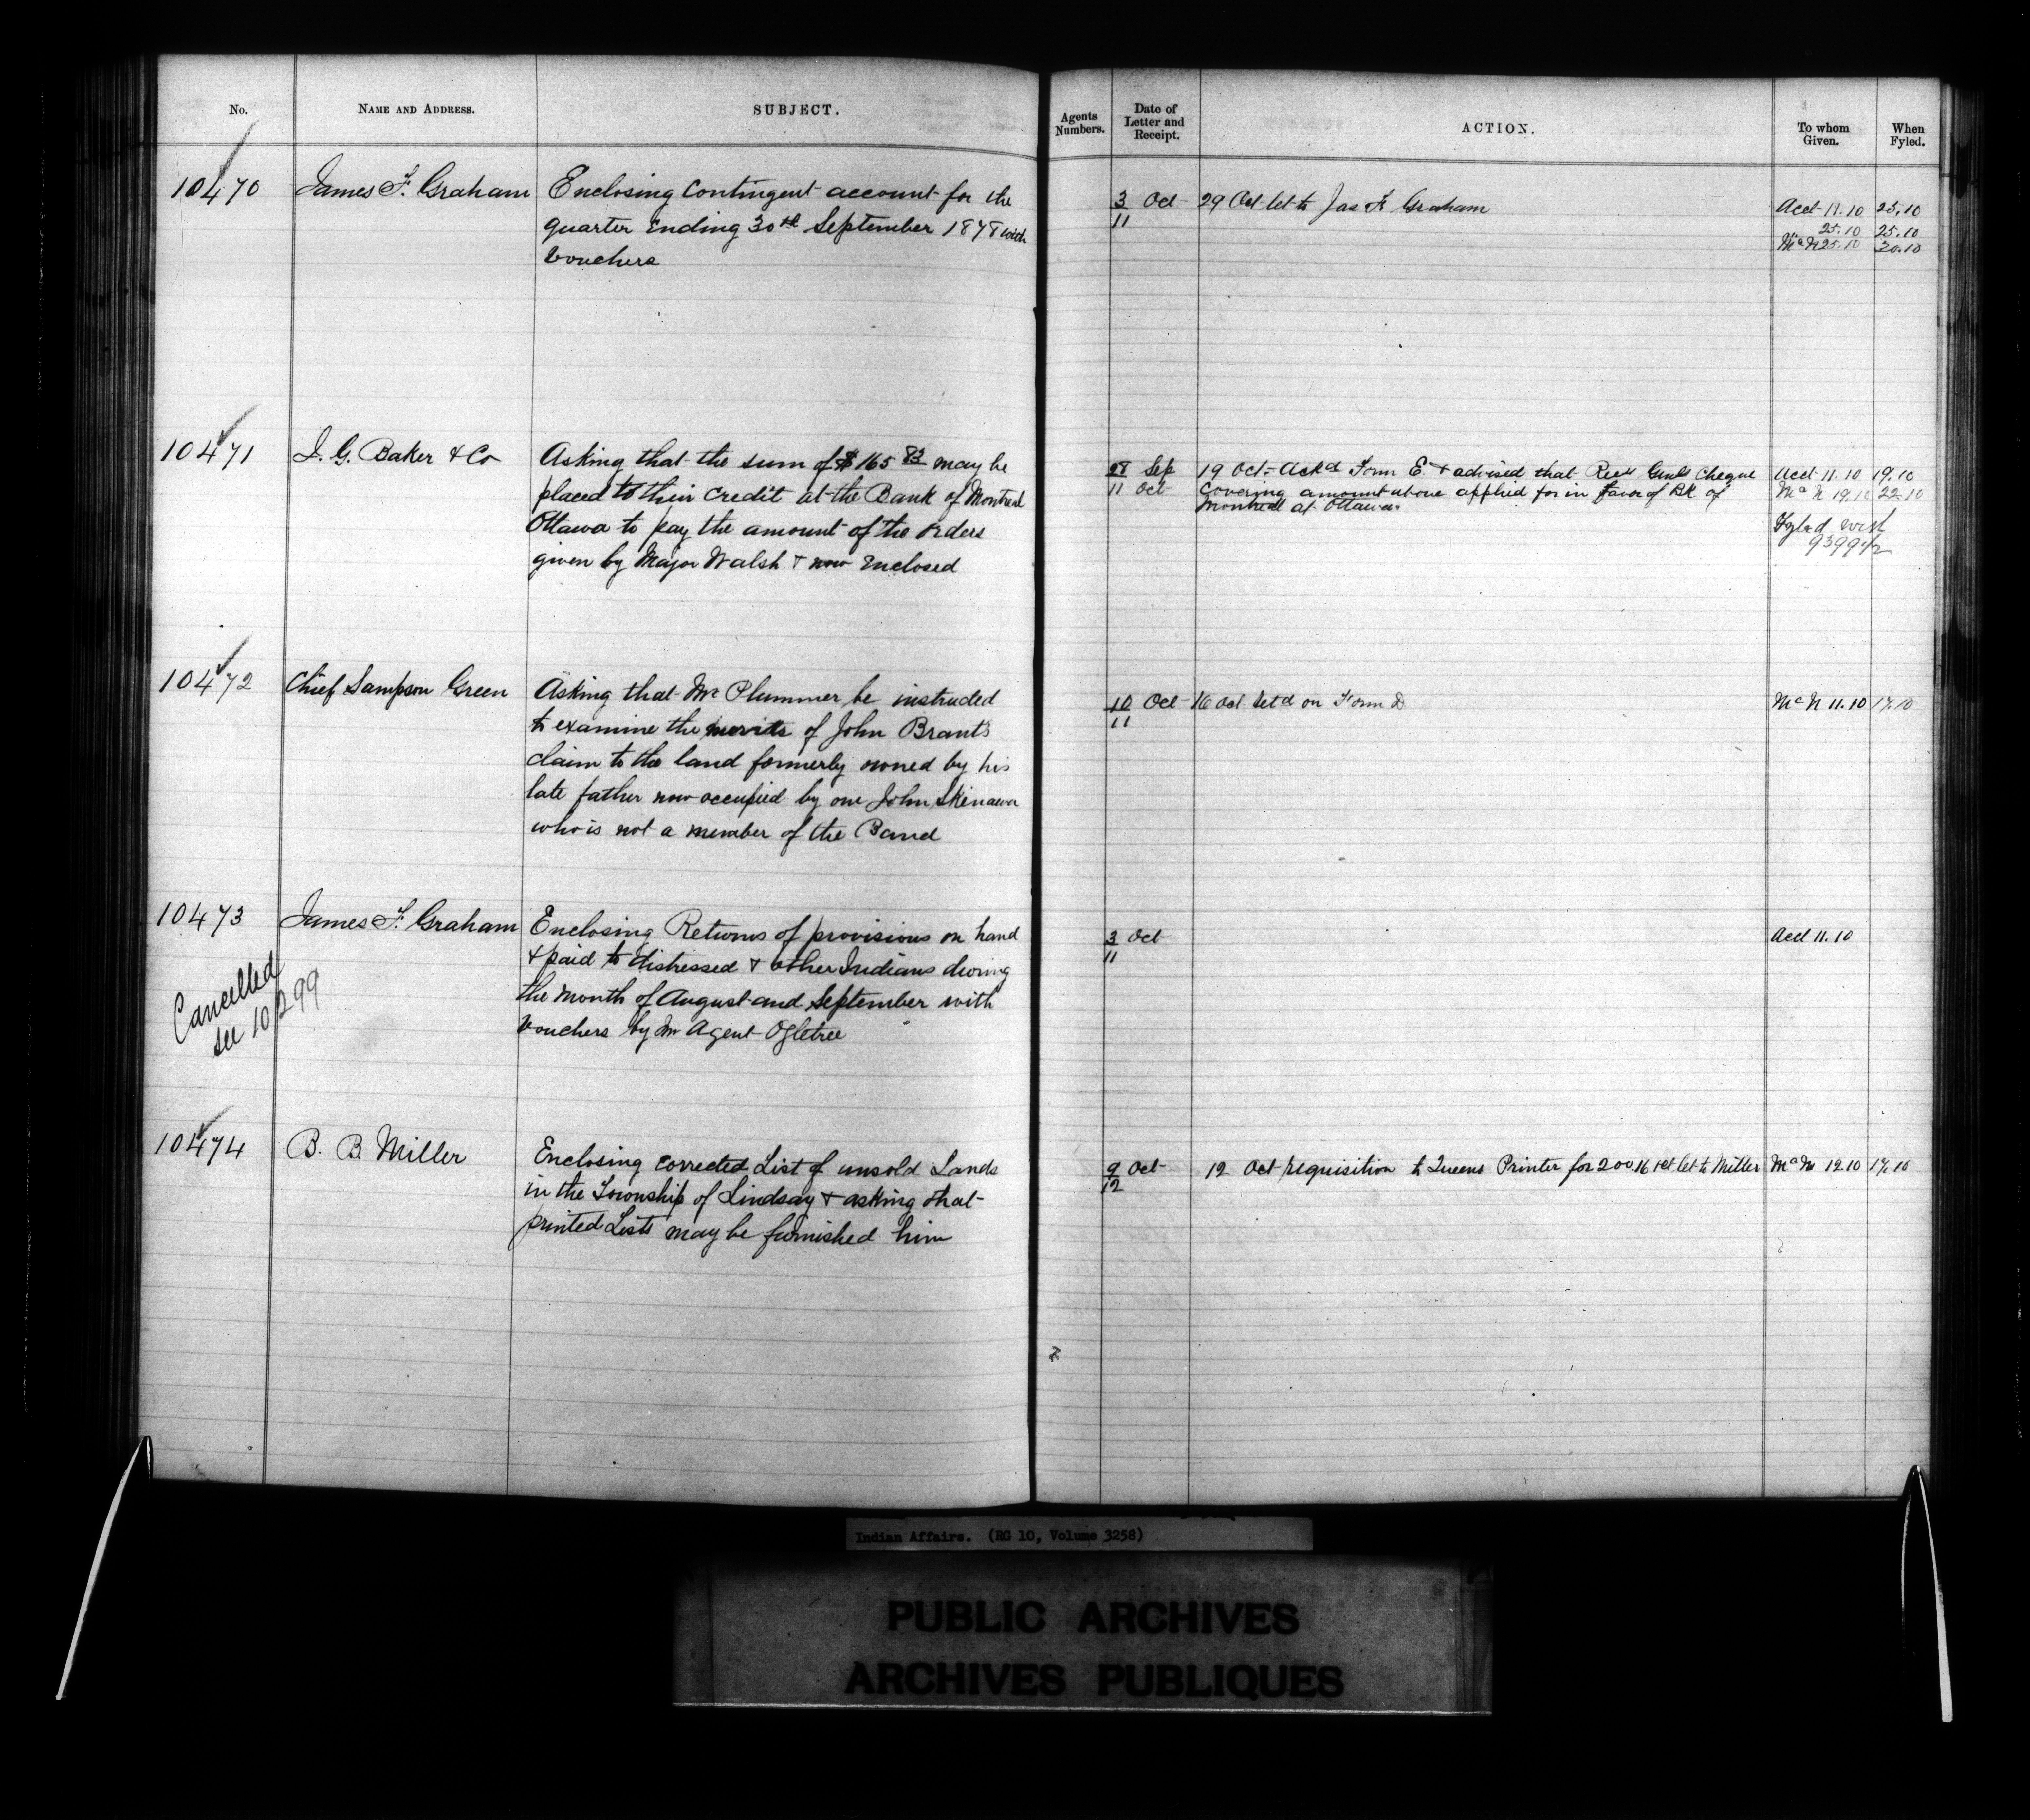 No.
NAME AND ADDRESS.
SUBJECT.
10470
James F. Graham
Enclosing Contingent account for the
quarter Ending 30th September 1878 with
Vouchers
10471
I. G. Baker & Co
Asking that the sum of $165 83 may be
placed to their credit at the Bank of Montreal
Ottawa to pay the amount of the orders
given by Major Walsh & now Enclosed
10472
Chief Sampson Green
Asking that Mr Plummer be instructed
to examine the merits of John Brant's
claim to the land formerly owned by his
late father now occupied by one John
who is not a member of the Band
10473
Cancelled
see 10299
James F. Graham
Enclosing Returns of provisions on hand
& paid to distressed & other Indians during
the month of August and September with
Vouchers by Mr Agent Ogletree
10474
B. B. Miller
Enclosing corrected List of unsold Lands
in the Township of Lindsay & asking that
printed Lists may be furnished him
Agents
Numbers.
Date of
Letter and
Receipt.
ACTION.
To whom
Given.
When
Fyled.
3 Oct
11
29 Oct let to Jas F Graham
Acct 11.10 25.10
25.10 25.10
McN 25.10 30.10
28 Sep
11 Oct
19 Oct - Ackd Form E. & advised that Recr Genls Cheque
Covering amount above applied for in favor of Bk of
Montreal at Ottawa.
Acct 11.10 19.10
McN 19.10 22.10
Fyled with
9399 1/2
10 Oct
11
16 Oct Retd on Form D
McN 11.10 17.10
3 Oct
11
Acct 11.10
9 Oct
12
12 Oct requisition to Queens Printer for 200. 16 Oct let to Miller
McN 12.10 17.10
Indian Affairs. (RG 10, Volume 3258)
PUBLIC ARCHIVES
ARCHIVES PUBLIQUES